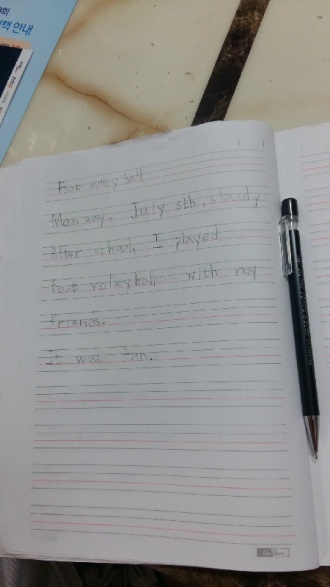 책 안내
Foot valey ball
Monday, July 5th, cloudy
After school, I played
foot valeyball with my
friends.
It was fun.